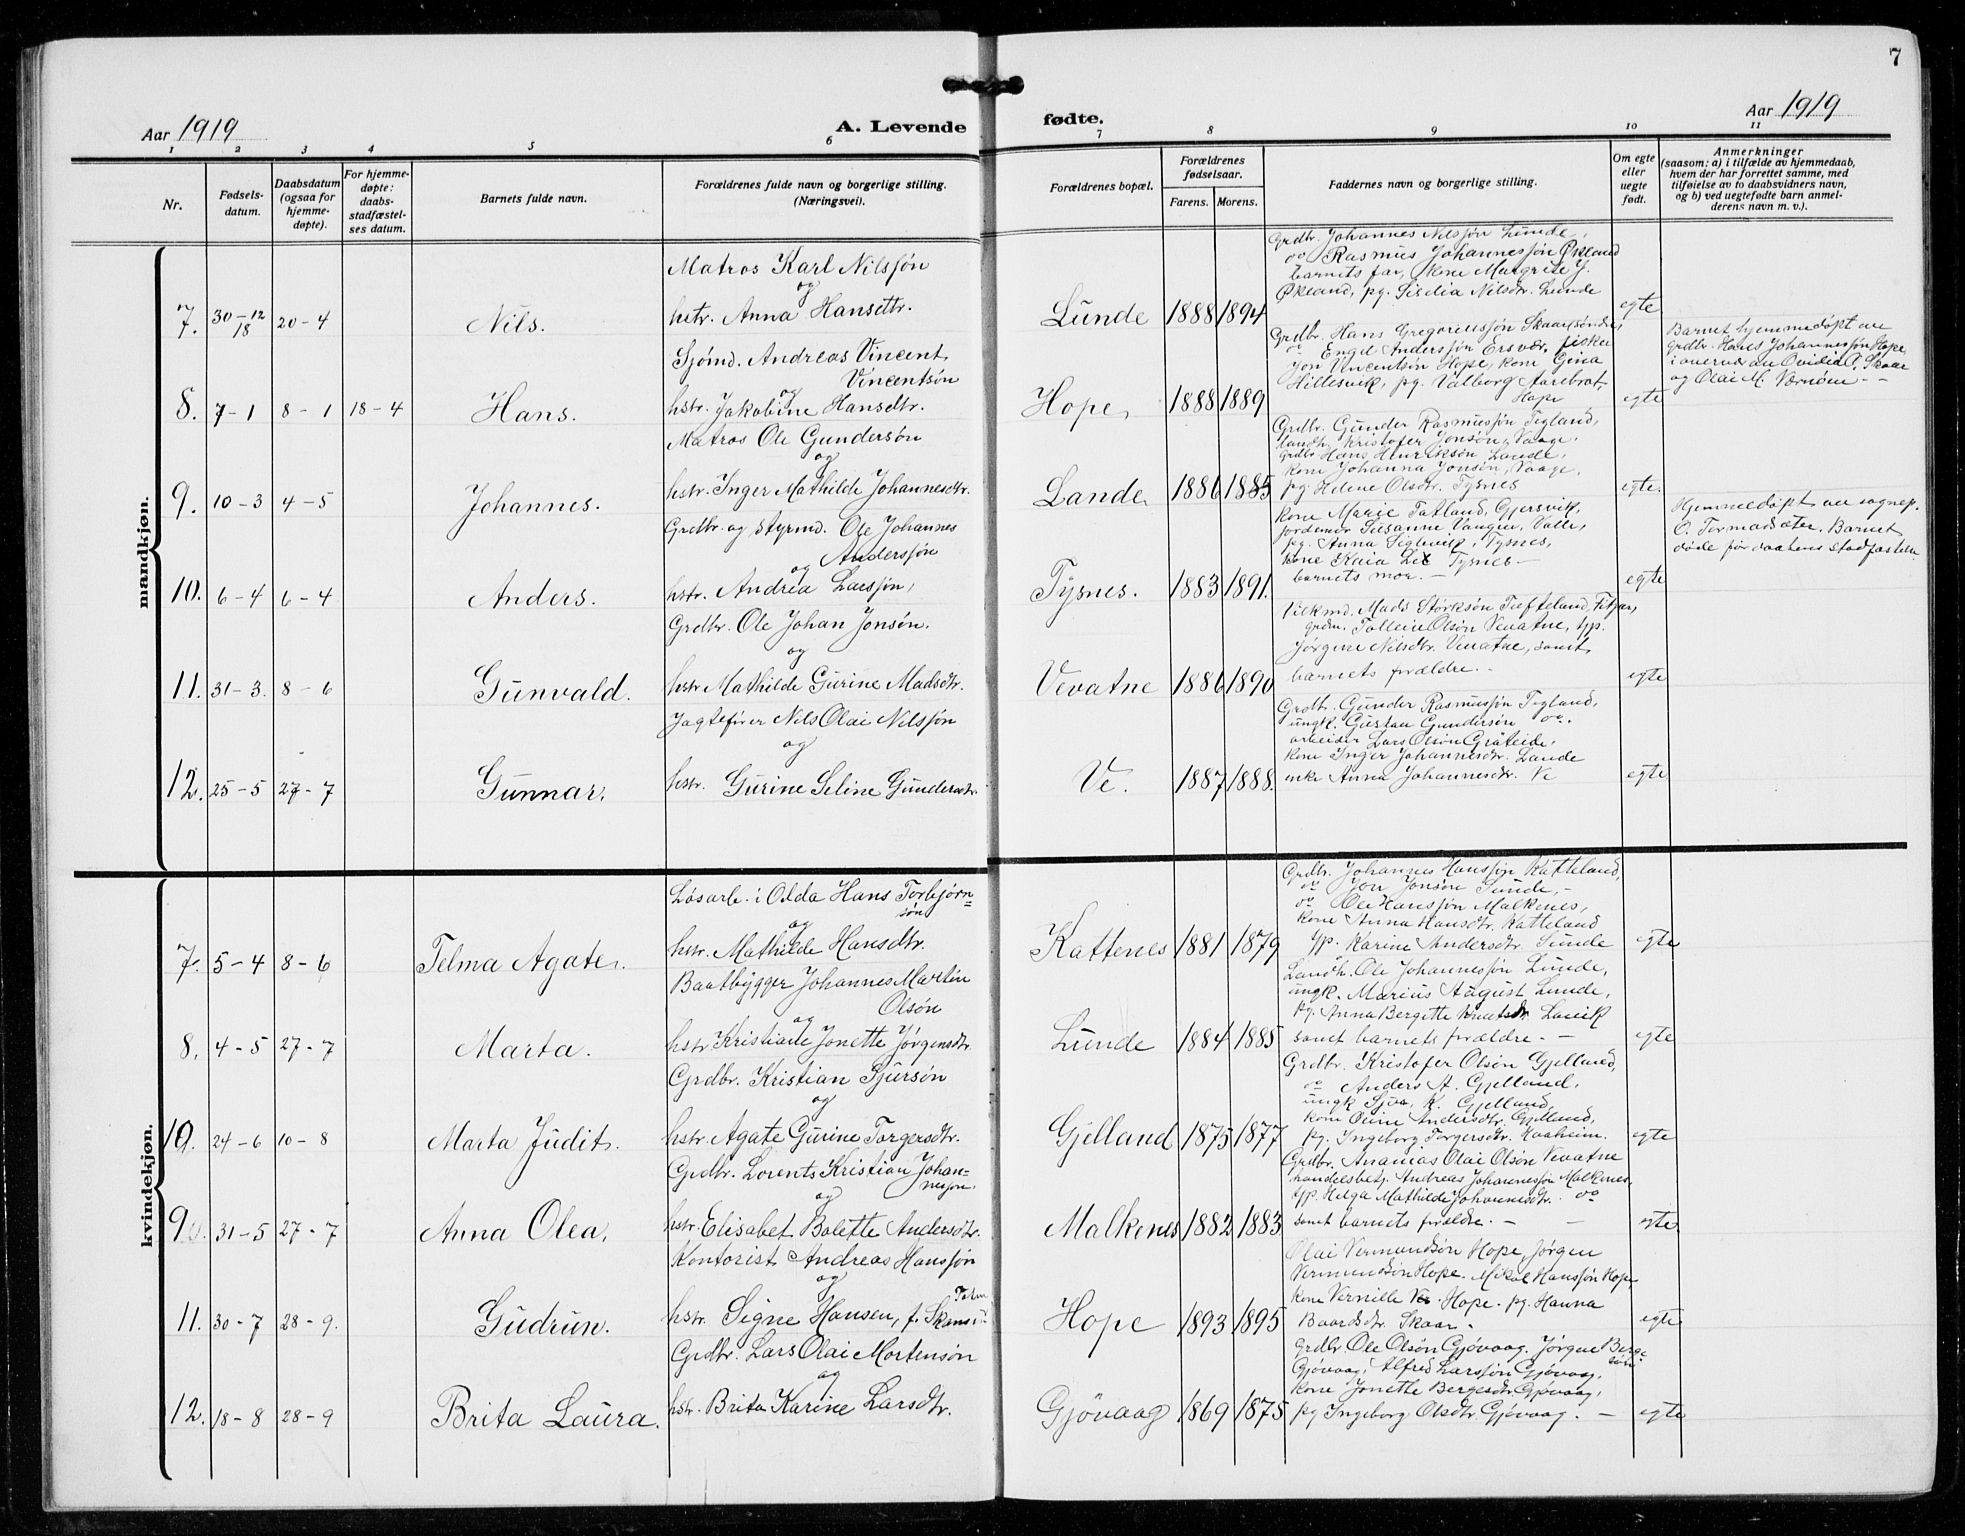 7
Aar 1919
A. Levende
fødte.
Aar 1919
1 2 3 4 5 6 7 8 9 10 11
Nr.
Fødsels-
datum.
Daabsdatum
(ogsaa for
hjemme-
døpte).
For hjemme-
døpte:
daabs-
stadfæstel-
ses datum.
Barnets fulde navn.
Forældrenes fulde navn og borgerlige stilling.
(Næringsvei).
Forældrenes bopæl.
Forældrenes
fødselsaar.
Farens. Morens.
Faddernes navn og borgerlige stilling.
Om egte
eller
uegte
født.
Anmerkninger
(saasom: a) i tilfælde av hjemmedaab,
hvem der har forrettet samme, med
tilføielse av to daabsvidners navn,
og b) ved uegtefødte barn anmel-
derens navn m. v.).
mandkjøn.
7. 30-12 18 20-4 Nils.
Matros Karl Nilssøn
og
hstr. Anna Hansdtr.
Lunde 1888 1894
Grdbr. Johannes Nilssøn Lunde,
do Rasmus Johannessøn Økland
barnets far, kone Margrete J.
Økland, pg. Sisilia Nilsdtr. Lunde
egte
8. 7-1 8-1 18-4 Hans.
Sjømd. Andreas Vincent
Vincentsøn
og
hstr. Jakobine Hansdtr.
Hope, 1888 1889
Grdbr. Hans Gregoriussøn Skaar, søndre,
do Engel Anderssøn Ersvær, fisker
Jon Vincentsøn Hope, kone Gina
Hillesvik, pg. Valborg Aarebrot,
Hope
egte
Barnet hjemmedøpt av
grdbr. Hans Johannessøn Hope,
i overvær av Ovidia A. Skaar
og Olai M. Værnøen - -
9. 10-3 4-5 Johannes.
Matros Ole Gundersøn
og
hstr. Inger Mathilde Johannesdtr.
Lande 1886 1885
Grdbr. Gunder Rasmussøn Tegland,
landh. Kristofer Jonsøn, Vaage,
grdbr Hans Henriksøn Lande,
kone Johanna Jonsøn, Vaage,
pg. Helene Olsdtr. Tysnes
egte.
10. 6-4 6-4 Anders.
Grdbr. og styrmd. Ole Johannes
Anderssøn
og
hstr. Andrea Larssøn,
Tysnes. 1883 1891.
kone Marie Tatland, Gjersvik,
jordemor Susanne Vaagen, Valle,
pg. Anna Siglevik, Tysnes,
kone Kaia Lie Tysnes -
barnets mor. -
egte
Hjemmedøpt av sognep.
O. Tormodsæter. Barnet
døde før daabens stadfæstelse
11. 31-3. 8-6 Gunvald.
Grdbr. Ole Johan Jonsøn.
og
hstr. Mathilde Gurine Madsdtr.
Vevatne 1886 1890
Grdm. Tolleiv Olsøn Vevatne, tjp.
Jørgine Nilsdtr. Vevatne, samt
barnets forældre. -
egte
12. 25-5 27-7 Gunnar.
Jagtefører Nils Olai Nilssøn
og
hstr. Gurine Seline Gundersdtr.
Ve. 1887 1888.
Grdbr. Gunder Rasmussøn Tegland,
ungk. Gustav Gundersøn do.
arbeider Lars Olsøn Gråteide.
kone Inger Johannesdtr. Lande
enke Anna Johannesdtr. Ve
egte
kvindekjøn.
7. 5-4 8-6 Telma Agate.
Løsarb. i Odda Hans Torbjørn=
søn
og
hstr. Mathilde Hansdtr.
Kattenes 1881 1879
Grdbr. Johannes Hanssøn Katteland,
do Jon Jonsøn Sunde, -
do Ole Hanssøn Malkenes,
kone Anna Hansdtr. Katteland
tjp. Karine Andersdtr. Sunde
egte
8. 4-5 27-7 Marta.
Baatbygger Johannes Martin
Olsøn
og
hstr Kristiane Jonette Jørgensdtr.
Lunde 1884 1885
Landh. Ole Johannessøn Lunde,
ungk. Marius August Lunde,
pg. Anna Bergitte Knutsdtr Lauvik
samt barnets forældre. - -
egte
10. 24-6 10-8 Marta Judit.
Grdbr. Kristian Sjursøn
og
hstr. Agate Gurine Torgersdtr.
Gjelland 1875 1877
Grdbr. Kristofer Olsøn Gjelland,
do Anders A. Gjelland,
ungk Sjur K. Gjelland
kone Oline Andersdtr. Gjelland,
pg. Ingeborg Torgersdtr. Kaaheim.
egte
9. 31-5 27-7 Anna Olea.
Grdbr. Lorents Kristian Johan=
nessøn.
og
hstr. Elisabet Bolette Andersdtr.
Malkenes 1882 1883
Grdbr. Ananias Olai Olsøn Vevatne
handelsbetj. Andreas Johannessøn Malkenes,
tjp. Helga Mathilde Johannesdtr. do
samt barnets forældre. - -
egte
11. 30-7 28-9. Gudrun.
Kontorist Andreas Hanssøn
og
hstr. Signe Hansen, f. Skaar
Hope 1893 1895
Olai Vermundsøn Hope, Jørgen
Vermundsøn Hope. Mikal Hanssøn Hope,
kone Pernille V. Hope. pg. Hanna
Baardsdtr. Skaar.
egte
12. 18-8 28-9 Brita Laura.
Grdbr. Lars Olai Mortensøn
og
hstr. Brita Karine Larsdtr.
Gjøvaag 1869 1875
Grdbr. Ole Olsøn Gjøvaag. Jørgen Berge=
søn
Gjøvaag, Alfred Larssøn Gjøvaag,
kone Jonette Bergesdtr. Gjøvaag,
pg Ingeborg Olsdtr Gjøvaag. -
egte